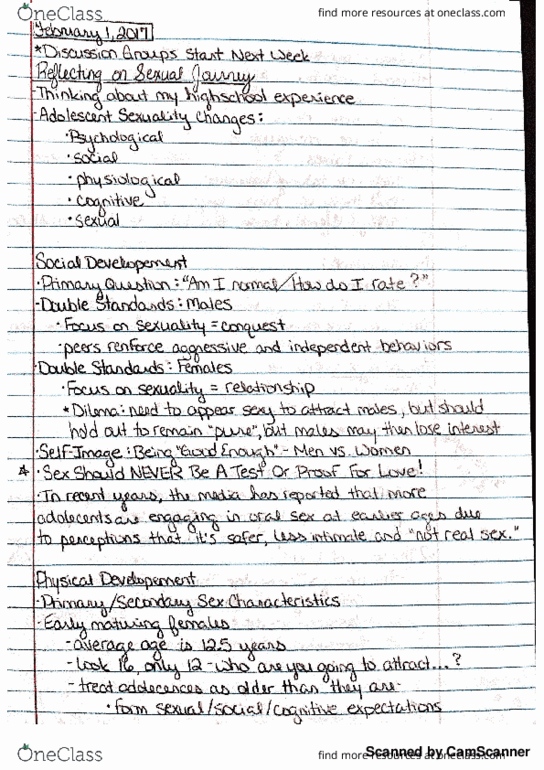 OneClass
find more resources at oneclass.com
February 1, 2017
*Discussion Groups Start Next Week
Reflecting on Sexual Journey
-Thinking about my highschool experience
-Adolescent Sexuality Changes:
•Psychological
•social
•physiological
•cognitive
•sexual
Social Developement
•Primary Question: "Am I normal/How do I rate?"
-Double Standards: Males
•Focus on sexuality = conquest
•peers renforce aggressive and independent behaviors
-Double Standards: Females
•Focus on sexuality = relationship
*Dilema: need to appear sexy to attract males, but should
hold out to remain "pure", but males may then lose interest
-Self-Image: Being "Good Enough" - Men vs. Women
•Sex Should NEVER Be A Test Or Proof For Love!
•In recent years, the media has reported that more
adolecents are engaging in oral sex at earlier ages due
to perceptions that it's safer, less intimate and "not real sex."
Physical Developement
-Primary/Secondary Sex Characteristics
-Early maturing females
-average age is 12.5 years
-look 16, only 12 - who are you going to attract...?
-treat adolecences as older than they are-
•form sexual/social/cognitive expectations
OneClass
find more resources at oneclass.com
Scanned by CamScanner